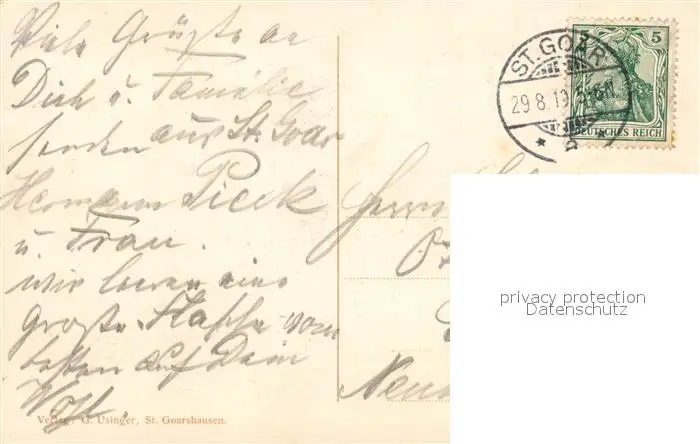 Viele Grüße an
Dich u. Familie
senden aus St. Goar
Hermann Pieck
u. Frau.
wir leeren eine
große Flasche vom
besten auf Dein
Wohl.
Verlag: G. Usinger, St. Goarshausen.
ST. GOAR
29.8.10
5
DEUTSCHES REICH
Herrn
privacy protection
Datenschutz